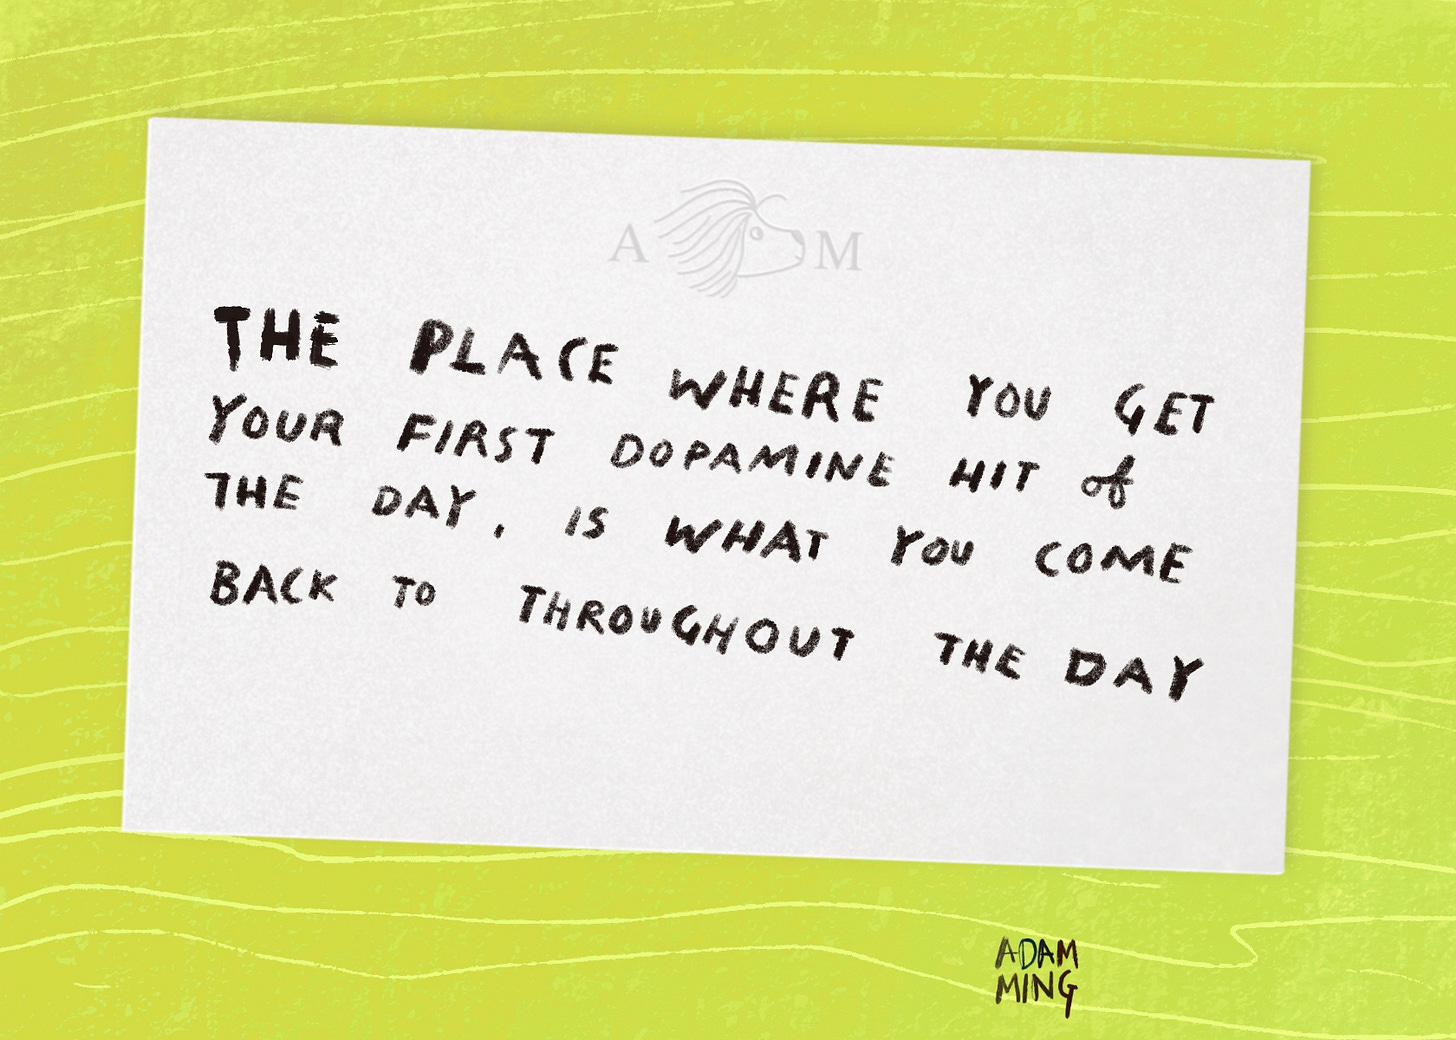 A M
THE PLACE WHERE YOU GET
YOUR FIRST DOPAMINE HIT of
THE DAY, IS WHAT YOU COME
BACK TO THROUGHOUT THE DAY
ADAM
MING